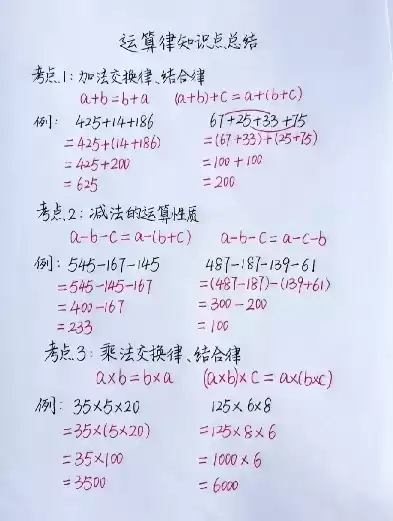 运算律知识点总结
考点1：加法交换律、结合律
a+b=b+a (a+b)+c=a+(b+c)
例： 425+14+186 67+25+33+75
=425+(14+186) =(67+33)+(25+75)
=425+200 =100+100
=625 =200
考点2：减法的运算性质
a-b-c=a-(b+c) a-b-c=a-c-b
例：545-167-145 487-187-139-61
=545-145-167 =(487-187)-(139+61)
=400-167 =300-200
=233 =100
考点3：乘法交换律、结合律
a×b=b×a (a×b)×c=a×(b×c)
例：35×5×20 125×6×8
=35×(5×20) =125×8×6
=35×100 =1000×6
=3500 =6000